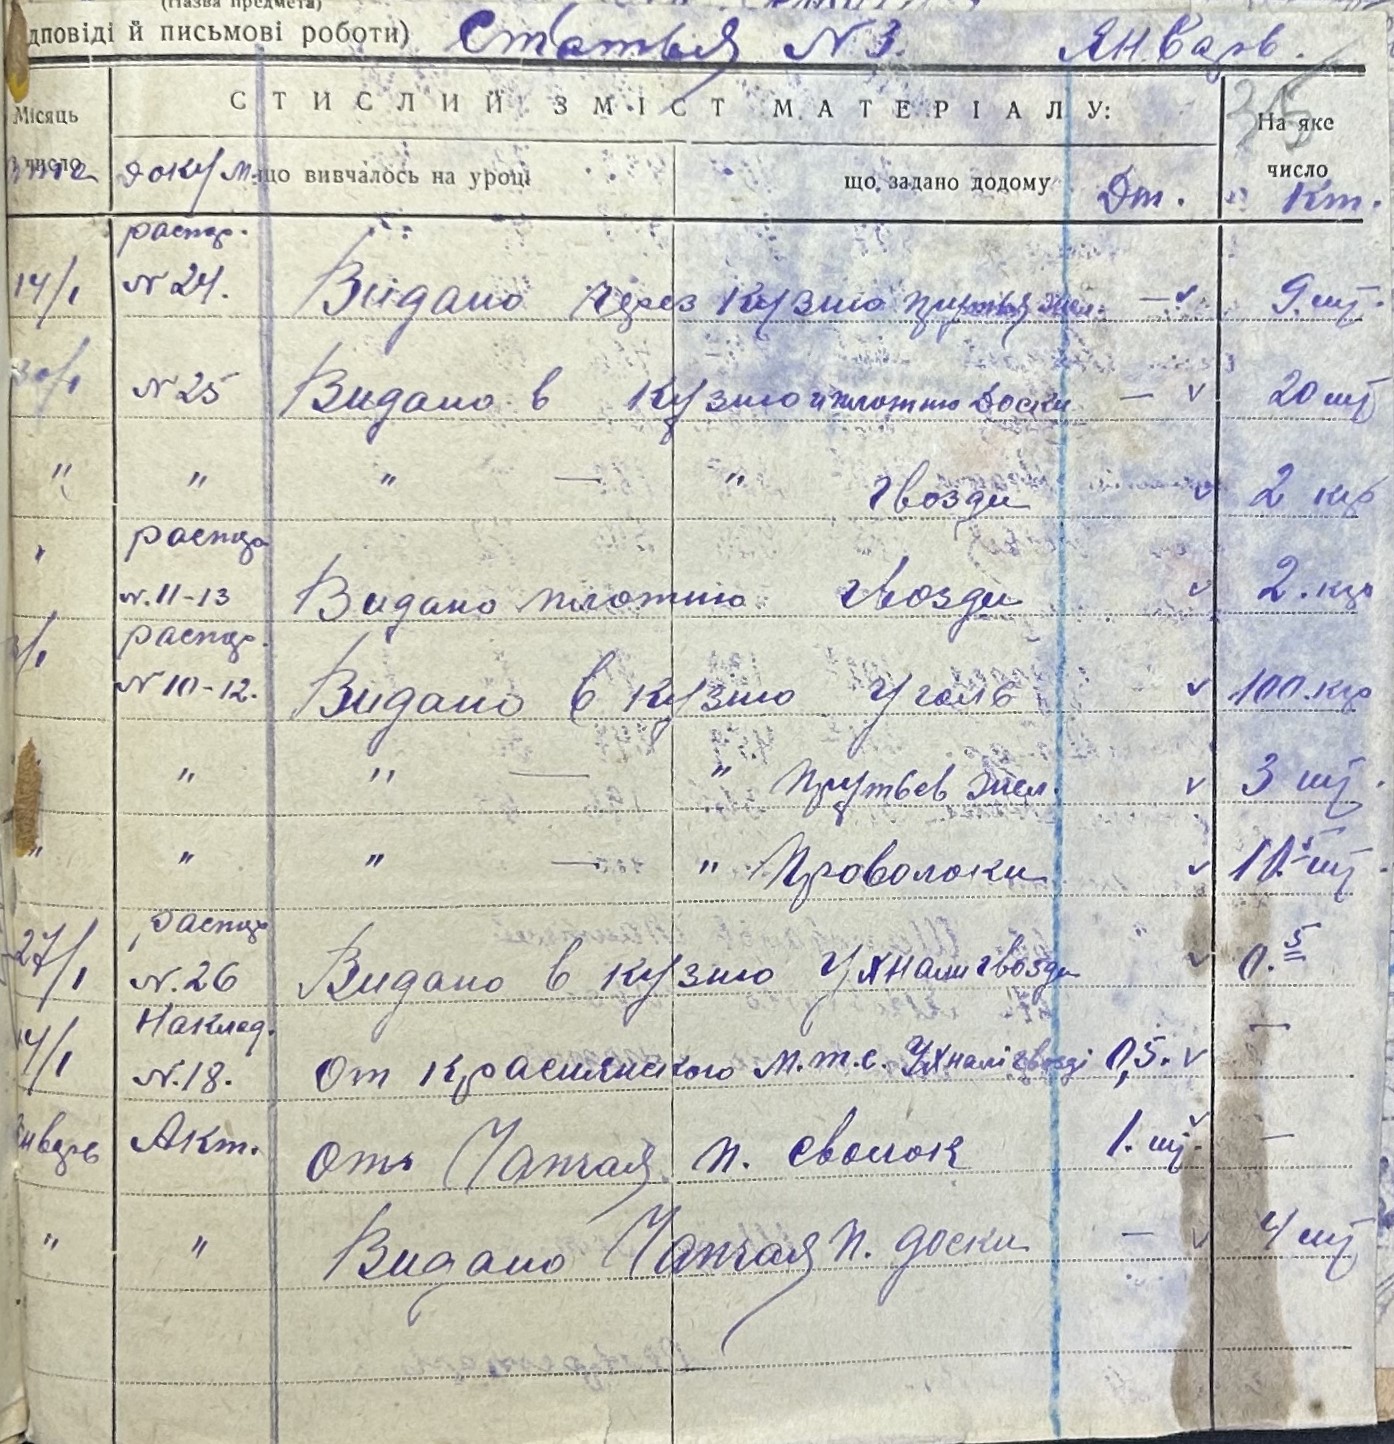 (Назва предмета)
дповіді й письмові роботи) Статья N 3. Январь.
35
Місяць СТИСЛИЙ ЗМІСТ МАТЕРІАЛУ: На яке
число докум. що вивчалось на уроці що задано додому Дт. число Кт.
распор.
14/1 N 24. Видано через Кузню прутья жел. — v 9. шт.
30/1 N 25 Видано в Кузню и плотню Доски — v 20 шт
" " " — " гвозди v 2 кгр
распор
" N. 11-13 Видано плотню гвозди v 2. кгр
распор.
/1 N 10-12. Видано в кузню уголь v 100. кгр
" " " — " Прутьев жел. v 3 шт.
" " " — " Проволоки v шт.
распор
27/1 N. 26 Видано в кузню Ухнали гвозди v 0.5
Наклад.
4/1 N. 18. От Красилнского м.т.с. Ухналі гвозді 0,5. v —
Январь Акт. Отъ Чапчая п. сволок 1. шт. v —
" " Видано Чапчая п. доски — v 4 шт